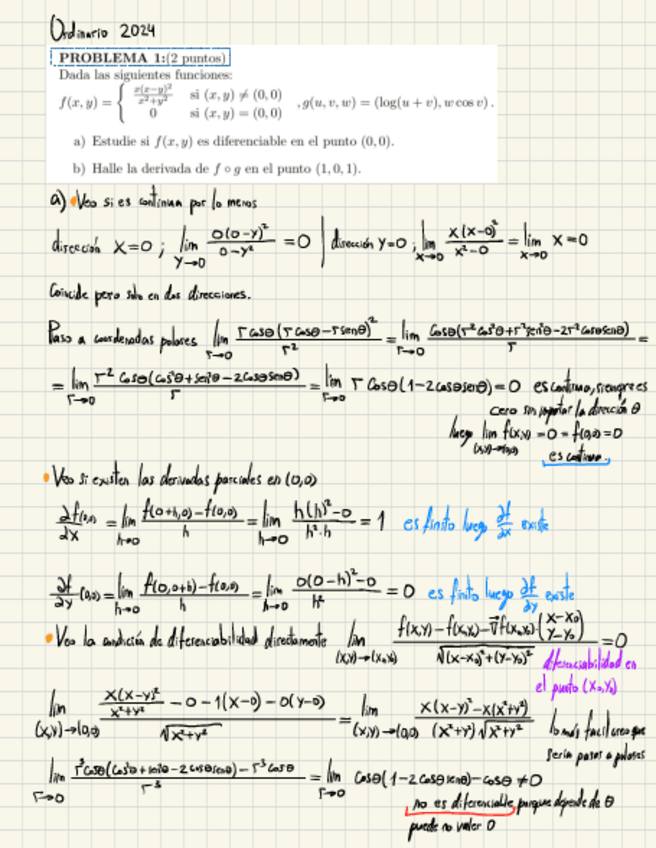 Ordinario 2024
PROBLEMA 1:(2 puntos)
Dada las siguientes funciones:
f(x, y) = { x(x−y)²/x²+y² si (x, y) ≠ (0, 0)
0 si (x, y) = (0, 0) , g(u, v, w) = (log(u + v), w cos v) .
a) Estudie si f(x, y) es diferenciable en el punto (0, 0).
b) Halle la derivada de f ∘ g en el punto (1, 0, 1).
a) Veo si es continua por lo menos
dirección X=0 ; lim y→0 0(0-y)²/0-y² = 0 | dirección Y=0 ; lim x→0 x(x-0)²/x²-0 = lim x→0 x = 0
Coincide pero solo en dos direcciones.
Paso a coordenadas polares lim r→0 rcosθ(rcosθ-rsenθ)²/r² = lim r→0 cosθ(r²cos²θ+r²sen²θ-2r²cosθsenθ)/r =
= lim r→0 r²cosθ(cos²θ+sen²θ-2cosθsenθ)/r = lim r→0 r cosθ(1-2cosθsenθ)=0 es continua, siempre es
cero sin importar la dirección θ
luego lim (x,y)→(0,0) f(x,y) = 0 = f(0,0) = 0
es continua.
Veo si existen las derivadas parciales en (0,0)
∂f(0,0)/∂x = lim h→0 f(0+h,0)-f(0,0)/h = lim h→0 h(h)²-0/h²·h = 1 es finito luego ∂f/∂x existe
∂f/∂y (0,0) = lim h→0 f(0,0+h)-f(0,0)/h = lim h→0 0(0-h)²-0/h² = 0 es finito luego ∂f/∂y existe
Veo la condición de diferenciabilidad directamente lim (x,y)→(x₀,y₀) f(x,y)-f(x₀,y₀)-∇f(x₀,y₀)(x-x₀ y-y₀)/√(x-x₀)²+(y-y₀)² = 0
diferenciabilidad en
el punto (x₀,y₀)
lim (x,y)→(0,0) x(x-y)²/x²+y² - 0 - 1(x-0) - 0(y-0)/√x²+y² = lim (x,y)→(0,0) x(x-y)²-x(x²+y²)/(x²+y²)√x²+y² lo más facil creo que
sería pasar a polares
lim r→0 r³cosθ(cos²θ+sen²θ-2cosθsenθ)-r³cosθ/r³ = lim r→0 cosθ(1-2cosθsenθ)-cosθ ≠ 0
no es diferenciable, porque depende de θ
puede no valer 0